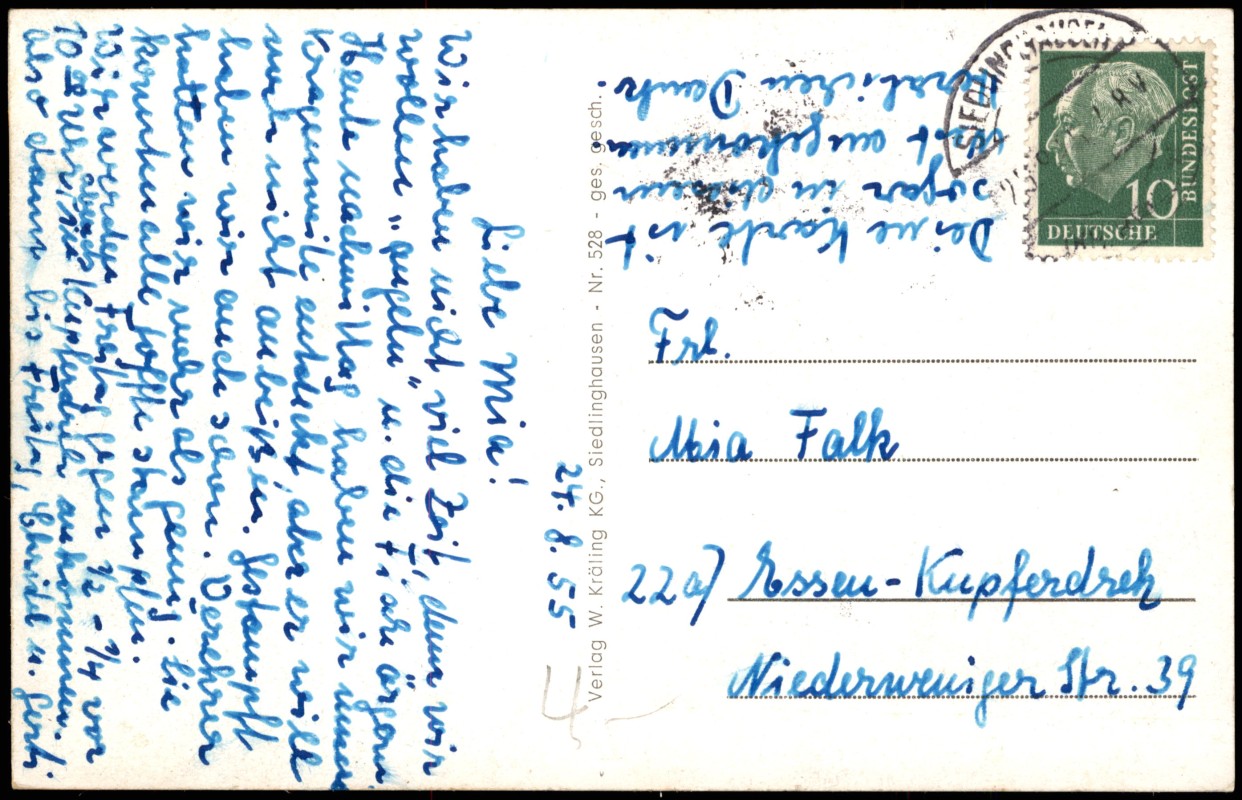 24. 8. 55
Liebe Mia!
Wir haben nicht viel Zeit, denn wir
wollen „angeln" u. die Tiere ärgern
Heute nachmittag haben wir unsere
entdeckt, aber er will
noch nicht anbeißen. Gestampft
haben wir auch schon. Verehrer
hatten wir mehr als genug. Sie
konnten alle stampfen.
Wir werden Freitag gegen 1/2 - 3/4 vor
10 abends in Kupferdreh ankommen.
also dann bis Freitag, Christel u. Gerti
Deine Karte ist
sogar in
ist angekommen
Herzlichen Dank.
Verlag W. Kräling KG., Siedlinghausen - Nr. 528 - ges. gesch.
SIEDLINGHAUSEN
10
DEUTSCHE
BUNDESPOST
Frl.
Mia Falk
22a) Essen-Kupferdreh
Niederweniger Str. 39
4-